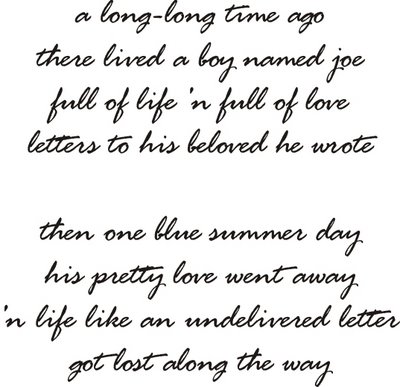 a long-long time ago
there lived a boy named joe
full of life 'n full of love
letters to his beloved he wrote
then one blue summer day
his pretty love went away
'n life like an undelivered letter
got lost along the way